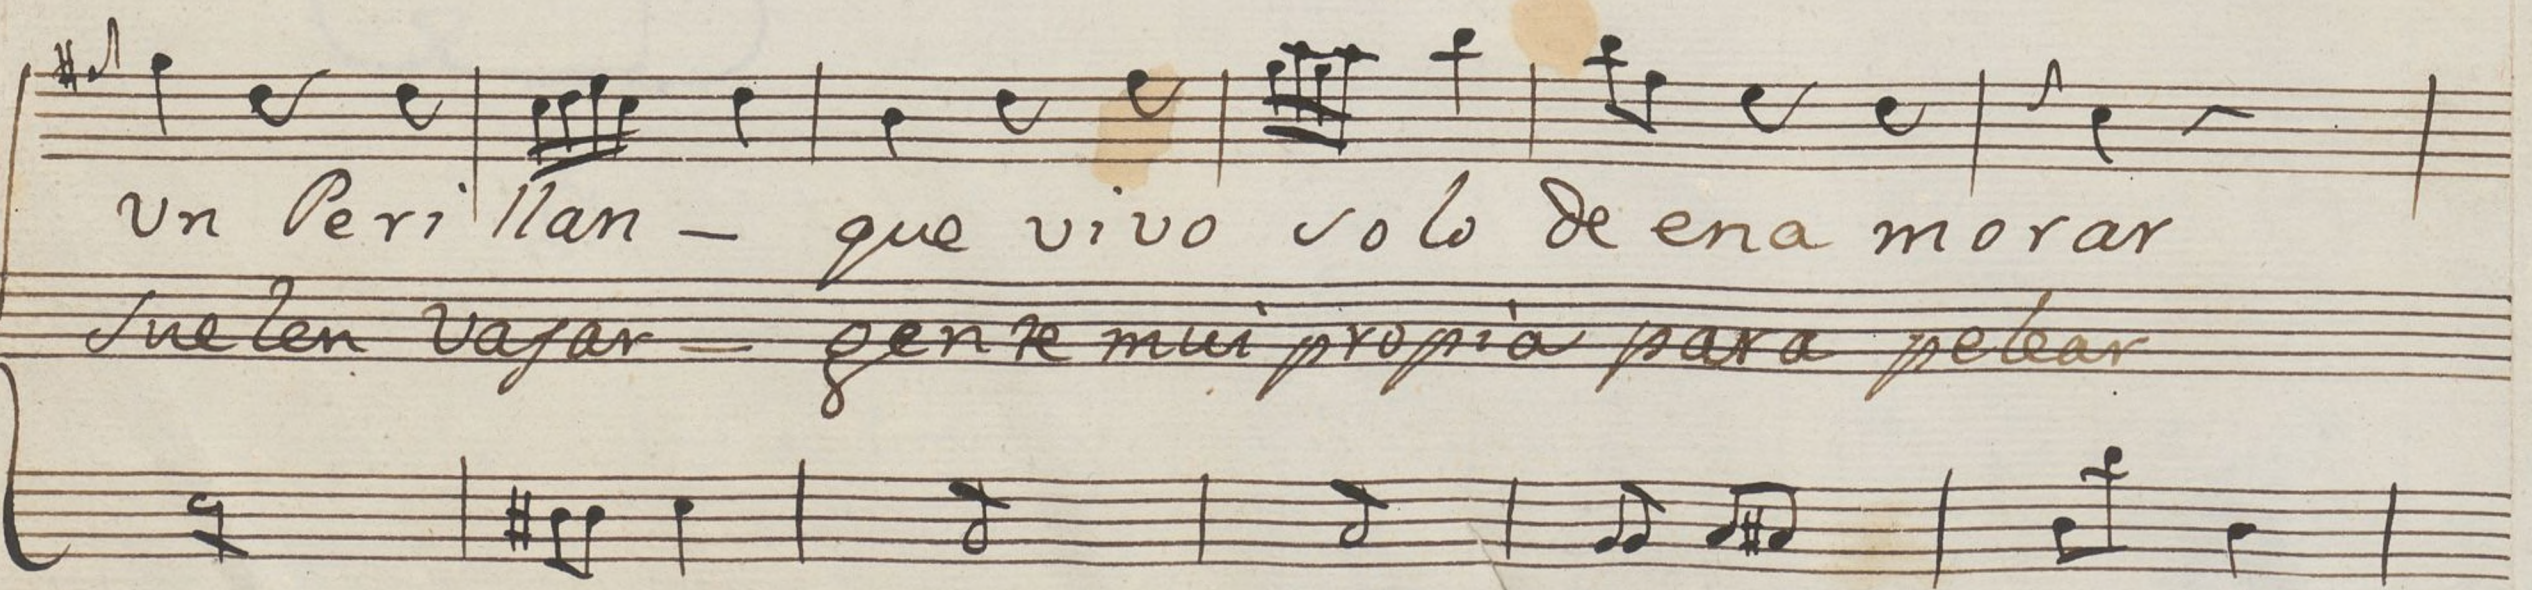 un Perillan - que vivo solo de enamorar
suelen vajar - gente mui propia para pelear